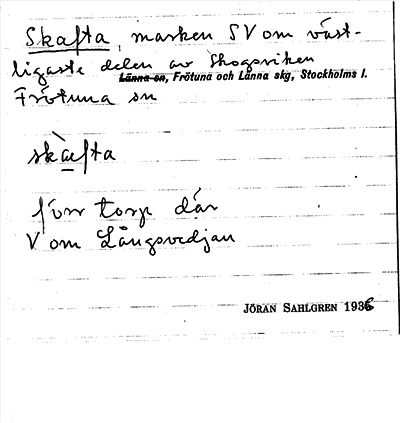 Skafta, marken SV om väst-
ligaste delen av Skogsviken
Länna sn, Frötuna och Länna skg, Stockholms l.
Frötuna sn
skàefta
förr torp där
V om Långsvedjan
JÖRAN SAHLGREN 1936